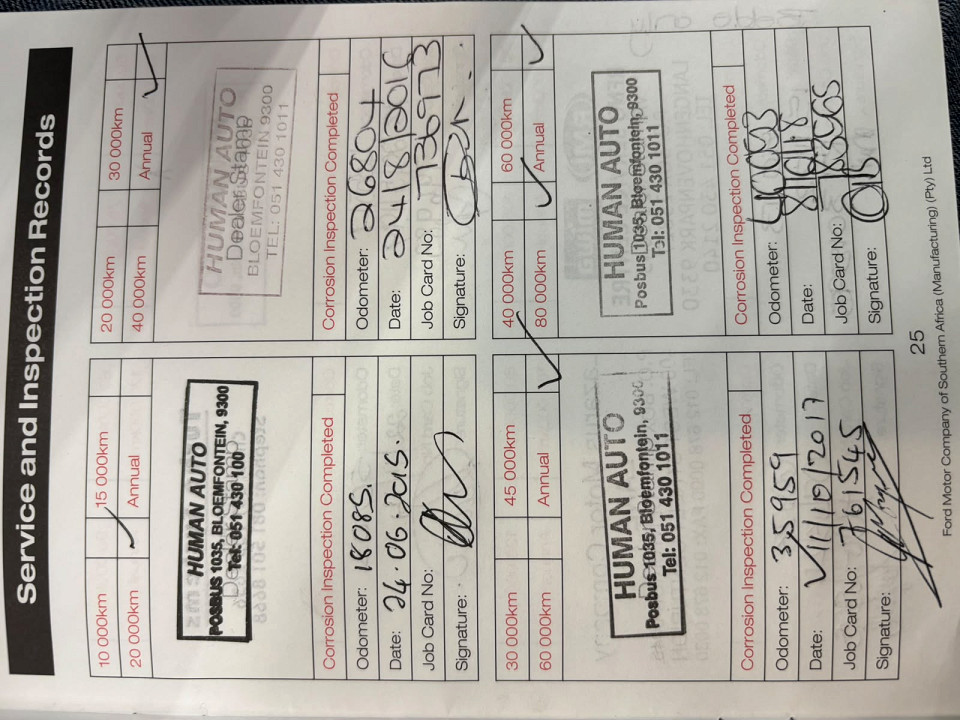 Service and Inspection Records
10 000km 15 000km
20 000km Annual
HUMAN AUTO
POSBUS 1035, BLOEMFONTEIN, 9300
Tel: 051 430 100
Corrosion Inspection Completed
Odometer: 18085.
Date: 24.06.2015.
Job Card No:
Signature:
20 000km 30 000km
40 000km Annual
HUMAN AUTO
Dealer Stamp
BLOEMFONTEIN 9300
TEL: 051 430 1011
Corrosion Inspection Completed
Odometer: 26804
Date: 24/8/2016
Job Card No: 736973
Signature:
30 000km 45 000km
60 000km Annual
HUMAN AUTO
Posbus 1035, Bloemfontein, 9300
Tel: 051 430 1011
Corrosion Inspection Completed
Odometer: 35959
Date: 11/10/2017
Job Card No: 761545
Signature:
40 000km 60 000km
80 000km Annual
HUMAN AUTO
Posbus 1035, Bloemfontein, 9300
Tel: 051 430 1011
Corrosion Inspection Completed
Odometer: 40053
Date:
Job Card No: 783465
Signature:
25
Ford Motor Company of Southern Africa (Manufacturing) (Pty) Ltd